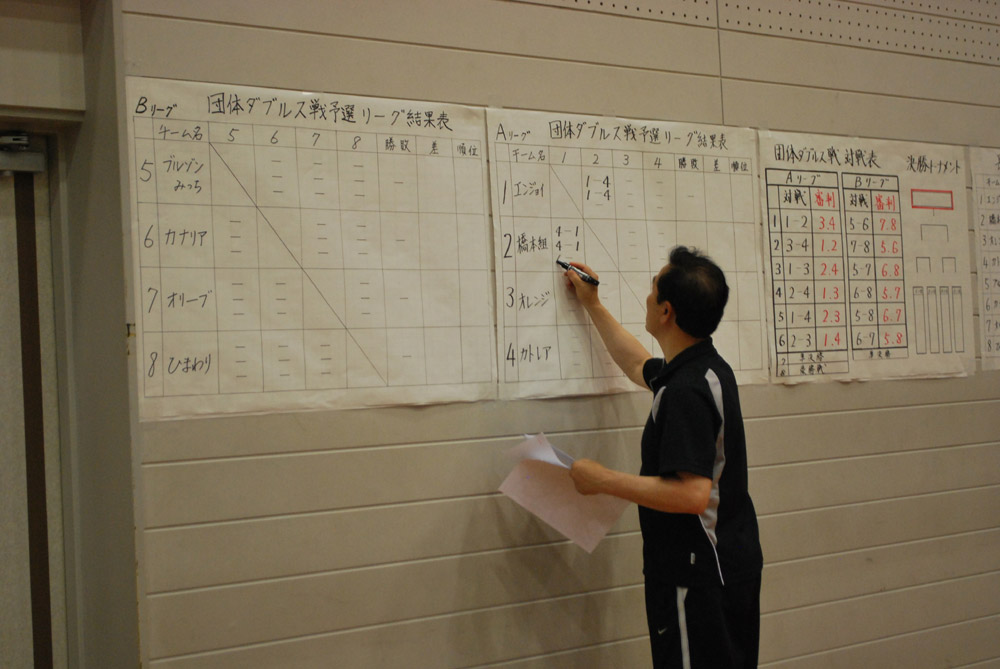 Bリーグ 団体ダブルス戦予選リーグ結果表
チーム名 5 6 7 8 勝敗 差 順位
5 ブルゾン
みっち
6 カナリア
7 オリーブ
8 ひまわり
Aリーグ 団体ダブルス戦予選リーグ結果表
チーム名 1 2 3 4 勝敗 差 順位
1 エンジョイ 1-4
1-4
2 橋本組 4-1
4-1
3 オレンジ
4 カトレア
団体ダブルス戦 対戦表 決勝トーナメント
Aリーグ Bリーグ
対戦 審判 対戦 審判
1 1-2 3.4 5-6 7.8
2 3-4 1.2 7-8 5.6
3 1-3 2.4 5-7 6.8
4 2-4 1.3 6-8 5.7
5 1-4 2.3 5-8 6.7
6 2-3 1.4 6-7 5.8
準決勝 準決勝
決勝戦